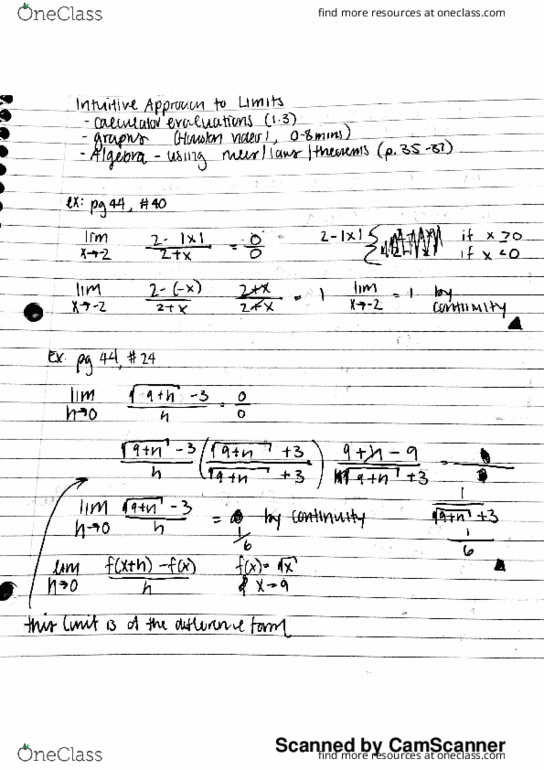 OneClass
find more resources at oneclass.com
Intuitive Approach to Limits
- calculator evaluations (1.3)
- graphs (Houston video 1, 0-8 mins)
- Algebra - using rules/laws/theorems (p. 35-37)
ex: pg 44, #40
lim x→-2 2-|x| / 2+x = 0/0 2-|x| { if x ≥ 0
if x < 0
lim x→-2 2-(-x) / 2+x 2+x / 2+x = 1 lim x→-2 = 1 by continuity
Ex. pg 44, #24
lim h→0 √9+h - 3 / h = 0/0
√9+h - 3 / h ( √9+h + 3 / √9+h + 3 ) 9+h-9 / h√9+h + 3 =
lim h→0 √9+h - 3 / h = 1/6 by continuity 1 / √9+h + 3
1/6
lim h→0 f(x+h) - f(x) / h f(x) = √x
x→9
this limit is of the difference form
Scanned by CamScanner
OneClass
find more resources at oneclass.com